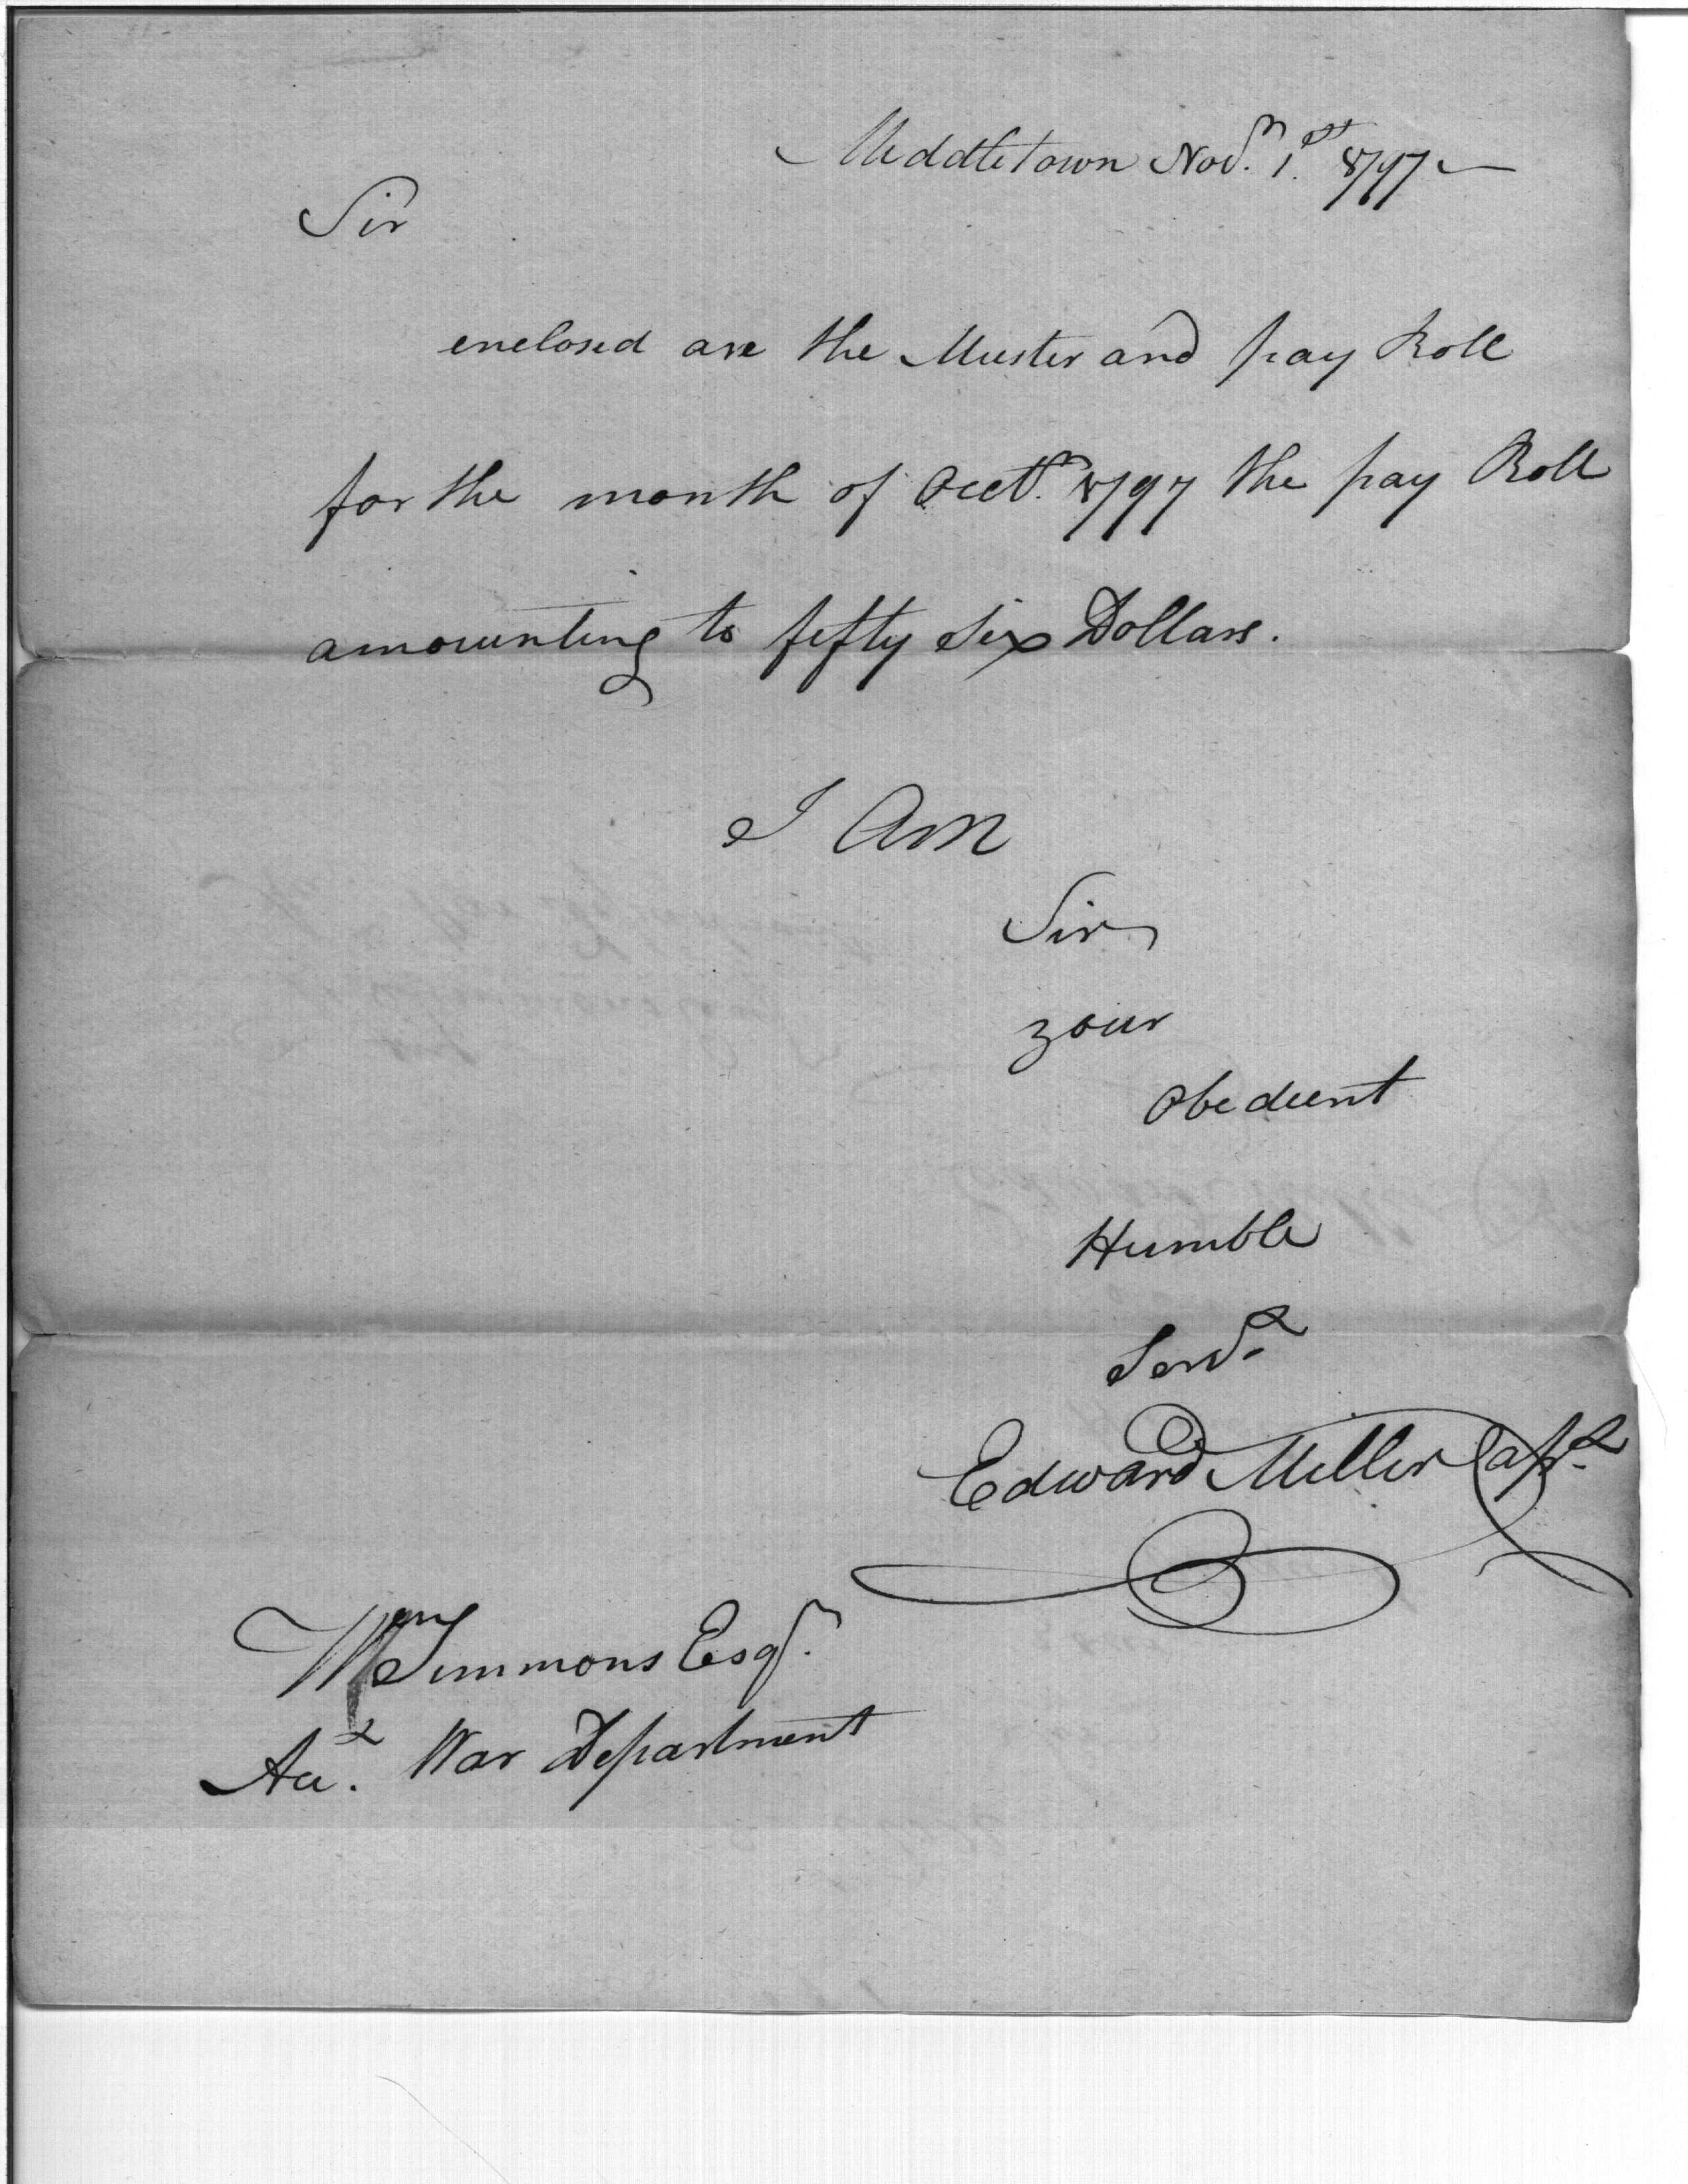 Middletown Nov.r 1.st 1797
Sir
enclosed are the Muster and pay Roll
for the month of Oct.r 1797 the pay Roll
amounting to fifty Six Dollars.
I Am
Sir
your
Obedient
Humble
Serv.t
Edward Miller Cap.t
Wm Simmons Esq.r
Act. War Department